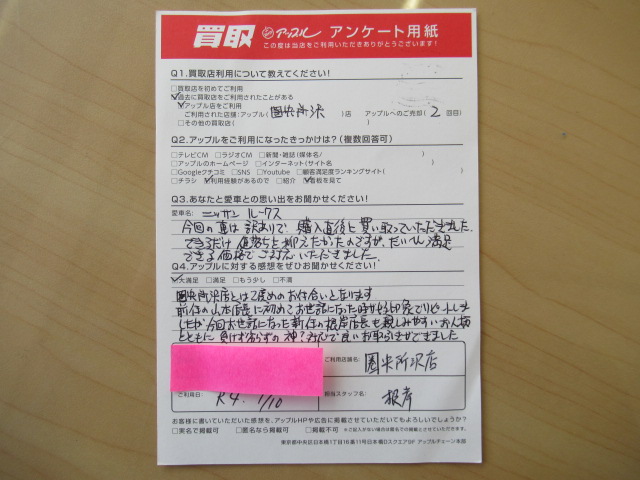 買取 アップル アンケート用紙
この度は当店をご利用いただきありがとうございます!
Q1.買取店利用について教えてください!
□買取店を初めてご利用
☑過去に買取店をご利用されたことがある
☑アップル店をご利用
ご利用された店舗:アップル( 圏央所沢 )店 アップルへのご売却( 2 回目)
□その他の買取店( )
Q2.アップルをご利用になったきっかけは?(複数回答可)
□テレビCM □ラジオCM □新聞・雑誌(媒体名/ )
□アップルのホームページ □インターネット(サイト名 )
□Googleクチコミ □SNS □Youtube □顧客満足度ランキングサイト( )
□チラシ ☑利用経験があるので □紹介 ☑看板を見て
Q3.あなたと愛車との思い出をお聞かせください!
愛車名: ニッサン ルークス
今回の車は訳ありで 購入直後と買い取っていただきました。
できるだけ 値落ちを抑えたかったのですが、だいぶん満足
できる価格でご対応いただきました。
Q4.アップルに対する感想をぜひお聞かせください!
☑大満足 □満足 □もう少し □不満
圏央所沢店とは2度めのお付合いとなります
前任の山本店長に初めてお世話になった時が好印象でリピートしま
したが今回お世話になった新任の根岸店長も親しみやすいお人柄
とともに 負けずおらずの神対応で良いお取引きができました
ご利用店舗名: 圏央所沢店
ご利用日: R4. 1/10
担当スタッフ名: 根岸
お客様に書いていただいた感想を、アップルHPや広告に掲載させていただいてもよろしいでしょうか?
□実名で掲載可 □匿名なら掲載可 □掲載不可 ※ご記入がない場合は匿名での掲載とさせていただきます。
東京都中央区日本橋1丁目16番11号日本橋Dスクエア9F アップルチェーン本部